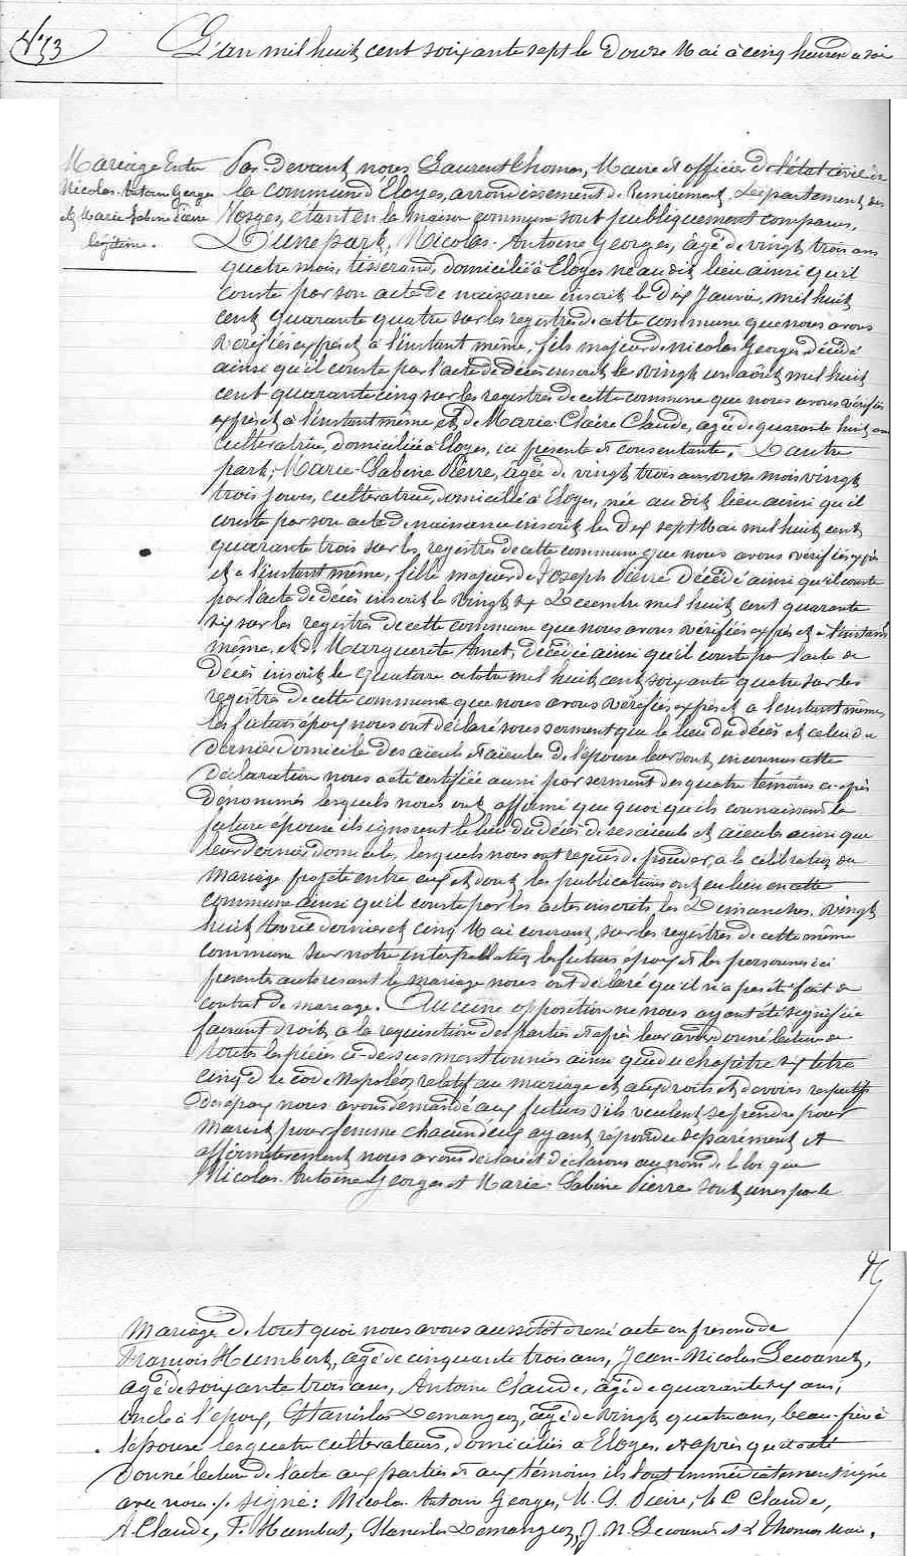 N° 13
L'an mil huit cent soixante sept le douze Mai à cinq heures du soir
Mariage Entre
Nicolas Antoine Georges
et Marie Sabine Pierre
légitime.
Par-devant nous Laurent Thomas, Maire et officier de l'état civil de
la commune d'Eloyes, arrondissement de Remiremont, Département des
Vosges, étant en la maison commune sont publiquement comparus,
D'une part, Nicolas-Antoine Georges, âgé de vingt trois ans
quatre mois, tisserand, domicilié à Eloyes né au dit lieu ainsi qu'il
conste par son acte de naissance inscrit le dix Janvier, mil huit
cent quarante quatre sur les registres de cette commune que nous avons
vérifiés exprès et à l'instant même, fils majeur de Nicolas Georges décédé
ainsi qu'il conste par l'acte de décès inscrit le vingt un août mil huit
cent quarante cinq sur les registres de cette commune que nous avons vérifiés
exprès et à l'instant même et de Marie-Claire Claude, agée de quarante huit ans
cultivatrice, domiciliée à Eloyes, ici présente et consentante, D'autre
part, Marie-Sabine Pierre, âgée de vingt trois ans onze mois vingt
trois jours, cultivatrice, domiciliée à Eloyes, née au dit lieu ainsi qu'il
conste par son acte de naissance inscrit le dix sept Mai mil huit cent
quarante trois sur les registres de cette commune que nous avons vérifiés exprès
et à l'instant même, fille majeur de Joseph Pierre décédé ainsi qu'il conste
par l'acte de décès inscrit le vingt six Décembre mil huit cent quarante
six sur les registres de cette commune que nous avons vérifiés exprès et à l'instant
même, et de Marguerite Arnet, décédée ainsi qu'il conste par l'acte de
décès inscrit le quatorze octobre mil huit cent soixante quatre sur les
registres de cette commune que nous avons vérifiés exprès et à l'instant même,
les futurs époux nous ont déclaré sous serment que le lieu du décès et celui du
dernier domicile des aïeuls et aïeules de l'épouse leur sont inconnus cette
déclaration nous a été certifiée aussi par serment des quatre témoins ci-après
dénommés lesquels nous ont affirmé que quoi qu'ils connaissent la
future épouse ils ignorent le lieu du décès de ses aïeuls et aïeules ainsi que
leur dernier domicile, lesquels nous ont requis de procéder, à la célébration du
mariage projeté entre eux et dont les publications ont eu lieu en cette
commune ainsi qu'il conste par les actes inscrits les Dimanches vingt
huit Avril dernier et cinq Mai courant, sur les registres de cette même
commune Sur notre interpellation les futurs époux et les personnes ici
présentes autorisant le mariage nous ont déclaré qu'il n'a pas été fait de
contrat de mariage. Aucune opposition ne nous ayant été signifiée
faisant droit à la réquisition des parties et après leur avoir donné lecture de
toutes les pièces ci-dessus mentionnées ainsi que du chapitre six titre
cinq du code Napoléon relatif au mariage et aux droits et devoirs respectifs
des époux nous avons demandé aux futurs s'ils veulent se prendre pour
mari et pour femme chacun d'eux ayant répondu séparément et
affirmativement nous avons déclaré et déclarons au nom de la loi que
Nicolas-Antoine Georges et Marie-Sabine Pierre sont unis par le
mariage de tout quoi nous avons aussitôt dressé acte en présence de
François Humbert, agé de cinquante trois ans, Jean-Nicolas Lecoanet,
agé de soixante trois ans, Antoine Claude, âgé de quarante six ans,
oncle à l'époux, Stanislas Demangeon, âgé de vingt quatre ans, beau-frère à
l'épouse les quatre cultivateurs, domiciliés à Eloyes, et après qu'il a été
donné lecture de l'acte aux parties et aux témoins ils l'ont immédiatement signé
avec nous ./. signé: Nicolas Antoine Georges, M. S. Pierre, M C Claude,
A Claude, F. Humbert, Stanislas Demangeon, J N Lecoanet et L Thomas Maire.